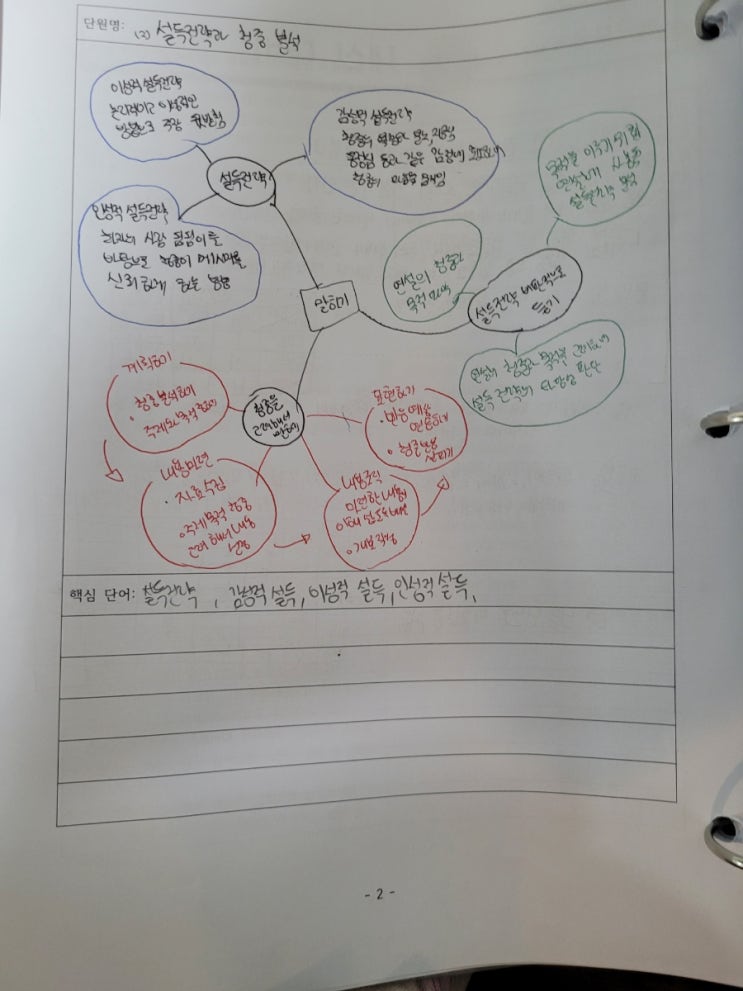 단원명: (2) 설득전략과 청중 분석
이성적 설득전략
논리적이고 이성적인
방법으로 주장 뒷받침
감성적 설득전략
청중의
동정심 등과 같은 감정에 호소하여
청중의 마음을 움직임
설득전략
인성적 설득전략
화자의 사람 됨됨이를
바탕으로 청중이 메시지를
신뢰하게 하는 방법
말하기
연설의 청중과
목적 파악
목적을 이루기 위해
연설에 사용된
설득전략 분석
설득전략 비판적으로
듣기
연설의 청중과 목적을 고려하여
설득 전략의 타당성 판단
청중을
고려해서
말하기
계획하기
· 청중분석하기
· 주제와 목적 정하기
내용마련
· 자료수집
· 주제 목적 청중
고려해서 내용
선정
내용조직
마련한 내용
· 개요작성
표현하기
언어
· 청중반응
살피기
핵심 단어: 설득전략, 감성적 설득, 이성적 설득, 인성적 설득,
- 2 -